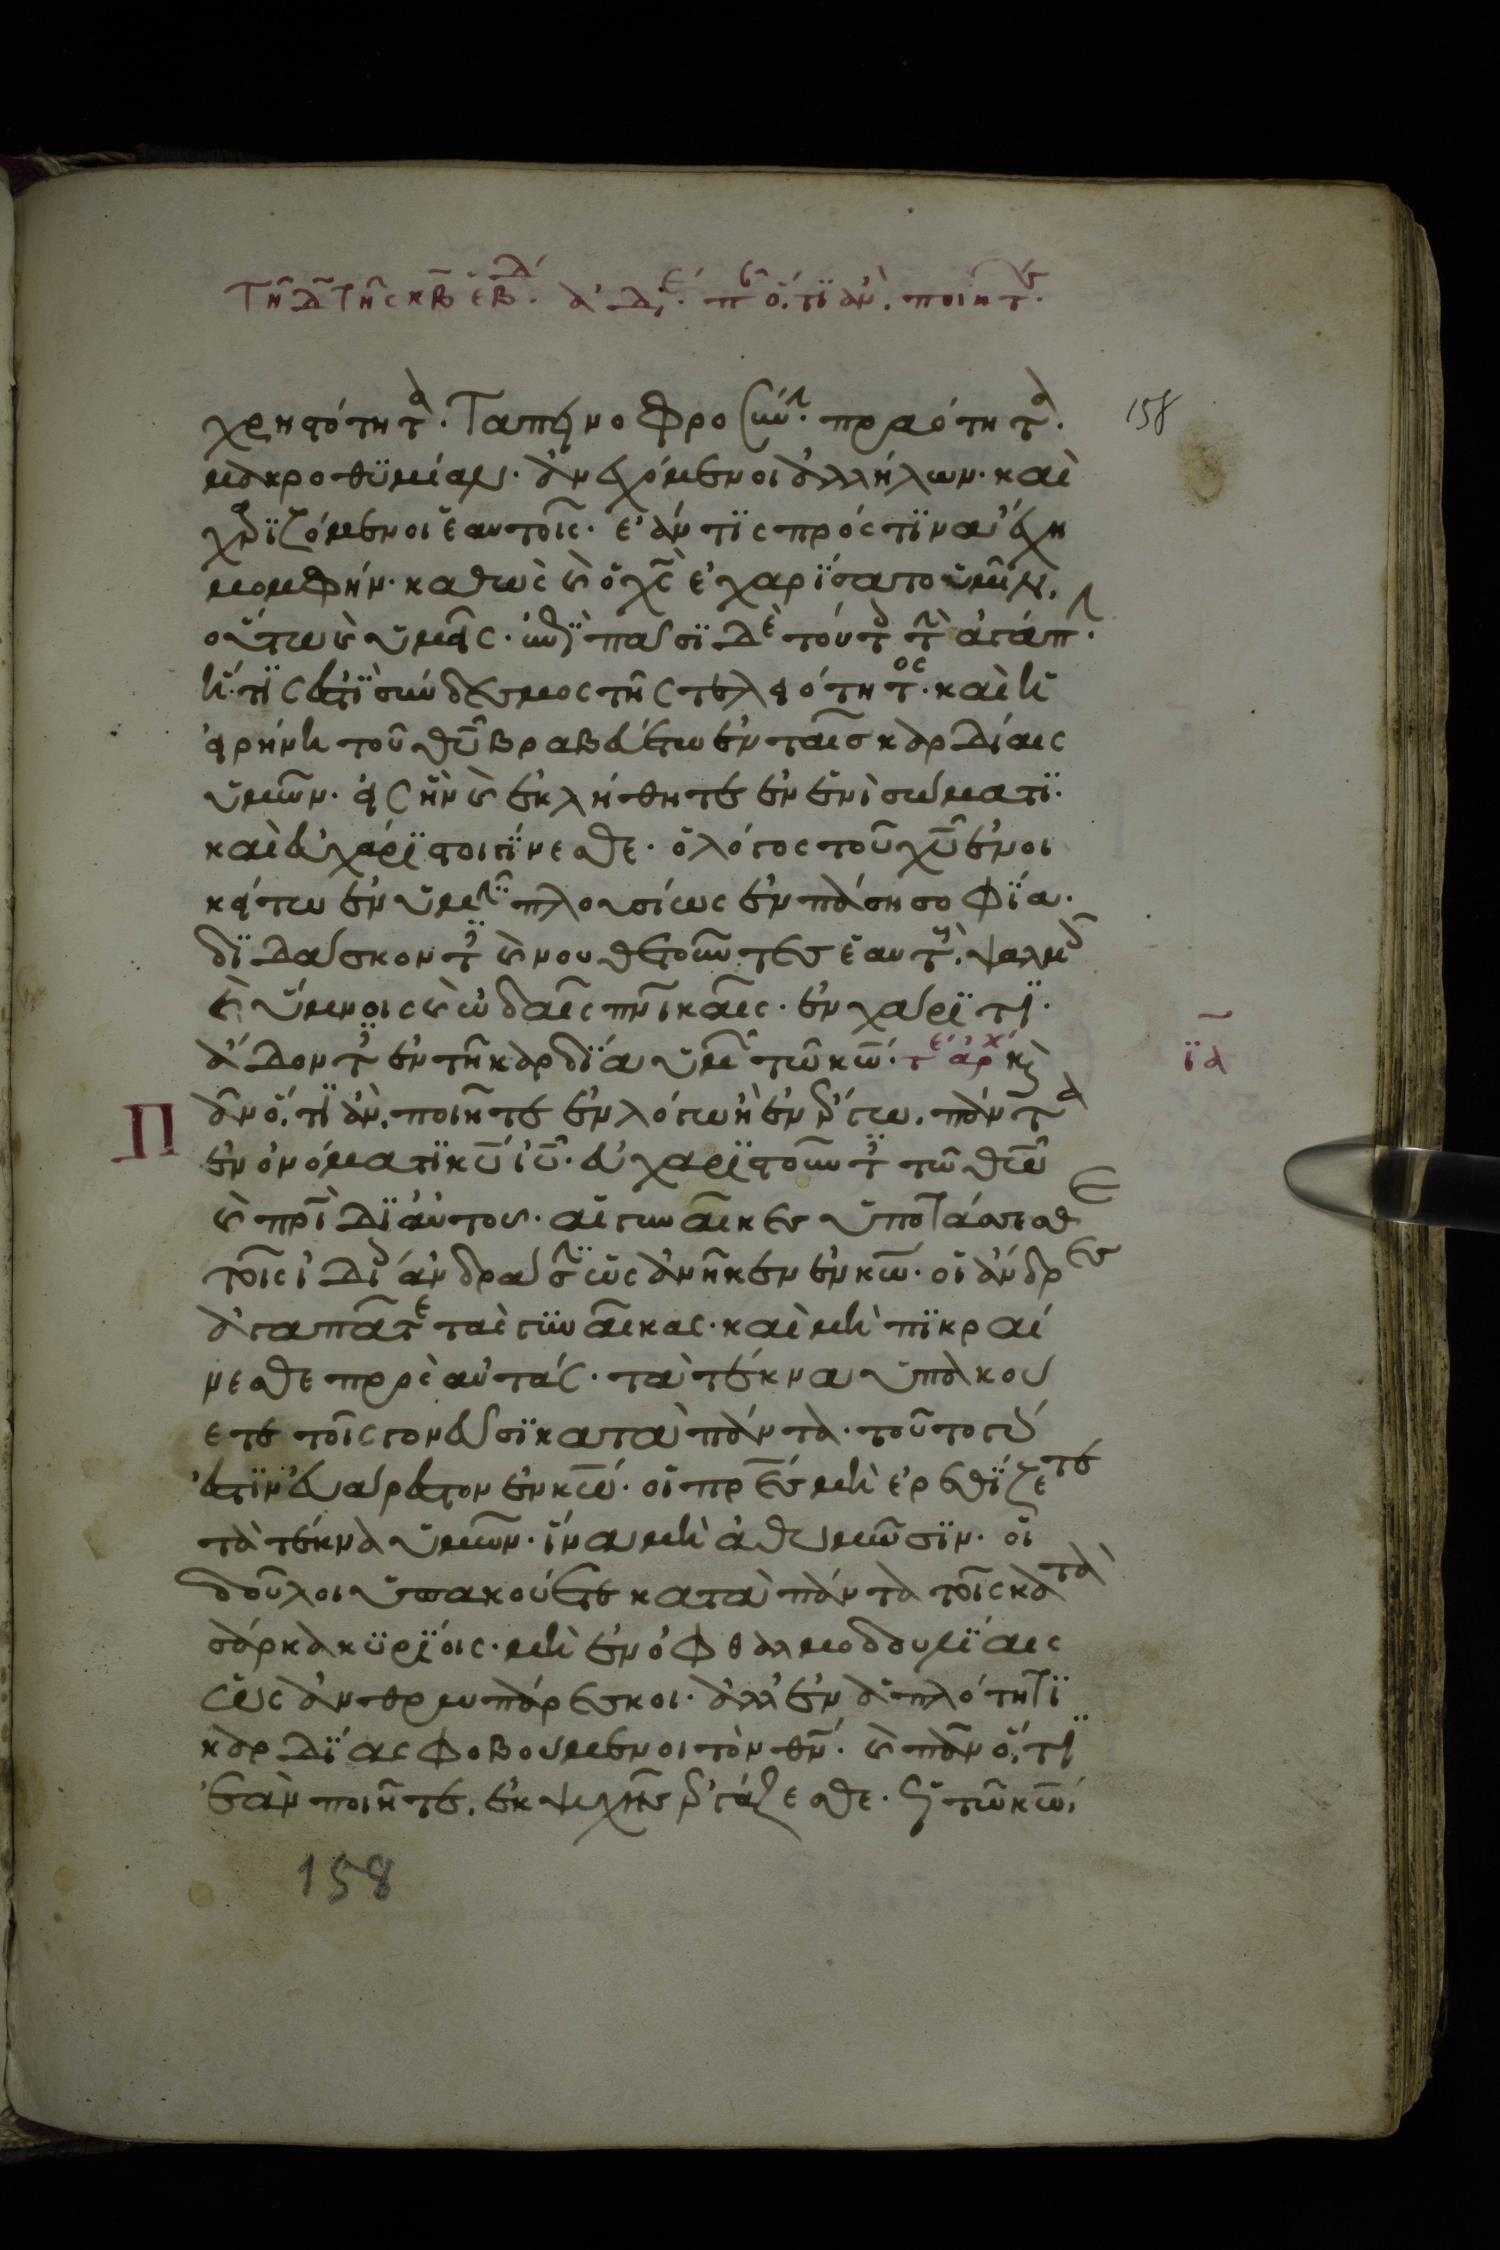 Τῆ δ τῆς κβ ἑβδ. ἀδε. π ὅ, τϊ ἀν, ποιητ.
χρηστότητα. Ταπεινοφροσύν. πραότητα.
158
μακροθϋμίαν. ἀνεχόμενοι ἀλλήλων. καὶ
χαρϊζόμενοι ἑαυτοῖς. ἐάν τϊς πρός τϊνα ἔχη
μομφήν. καθὼς κ ὁ χς ἐχαρΐσατο ὑμῖν,
οὕτω κ ὑμεῖς. ἐπΐ πάσϊ δὲ τούτοις τὴν ἀγάπην.
ἥ. τΐς ἐστϊ σύνδεσμος τῆς τελειότητος. καὶ ἡ
εἰρήνη τοῦ θυ βραβευέτω ἐν ταῖς καρδίαις
ὑμῶν. εἰς ἣν κ ἐκλήθητε ἐν ἑνὶ σώματϊ.
καὶ εὐχάρϊστοι γΐνεσθε. ὁ λόγος τοῦ χυ ἐνοι
κείτω ἐν ὑμῖν πλουσίως ἐν πάση σοφΐα.
δϊδάσκοντες κ νουθετοῦντες ἑαυτούς, ψαλμοῖς
κ ὕμνοις κ ὠδαῖς πνικαῖς. ἐν χάρϊτϊ.
ἄδοντες ἐν τῆ καρδΐα ὑμῶν τῶ κω. τε ἀρχ κ
ϊα
Πᾶν ὅ, τΐ ἀν, ποιῆτε ἐν λόγω ἢ ἐν ἔργω, πάντα
ἐν ὀνόματϊ κυ ιυ. εὐχαρϊστοῦντες τῶ θω
κ πρϊ δϊ αὐτοῦ. αἱ γυναῖκες ὑποτάσσεσθε
τοῖς ἰδΐοις ἀνδράσϊν ὡς ἀνῆκεν ἐν κω. οἱ ἄνδρες
ἀγαπᾶτε τὰς γϋναῖκας. καὶ μὴ πϊκραί
νεσθε πρὸς αὐτάς. τὰ τέκνα ὑπακού
ετε τοῖς γονεῦσϊ κατὰ πάντα. τοῦτο γάρ
ἐστϊν εὐάρεστον ἐν κω. οἱ πρες μὴ ἐρεθΐζετε
τὰ τέκνα ὑμῶν. ἵνα μὴ ἀθυμῶσϊν. οἱ
δοῦλοι ὑπακούετε κατὰ πάντα τοῖς κατὰ
σάρκα κϋρΐοις. μὴ ἐν ὀφθαλμοδουλΐαις
ὡς ἀνθρωπάρεσκοι. ἀλλ' ἐν ἁπλότητϊ
καρδΐας φοβούμενοι τὸν θν. κ πᾶν ὅ, τΐ
ἐὰν ποιῆτε, ἐκ ψυχῆς ἐργάζεσθε. ὡς τῶ κω,
158